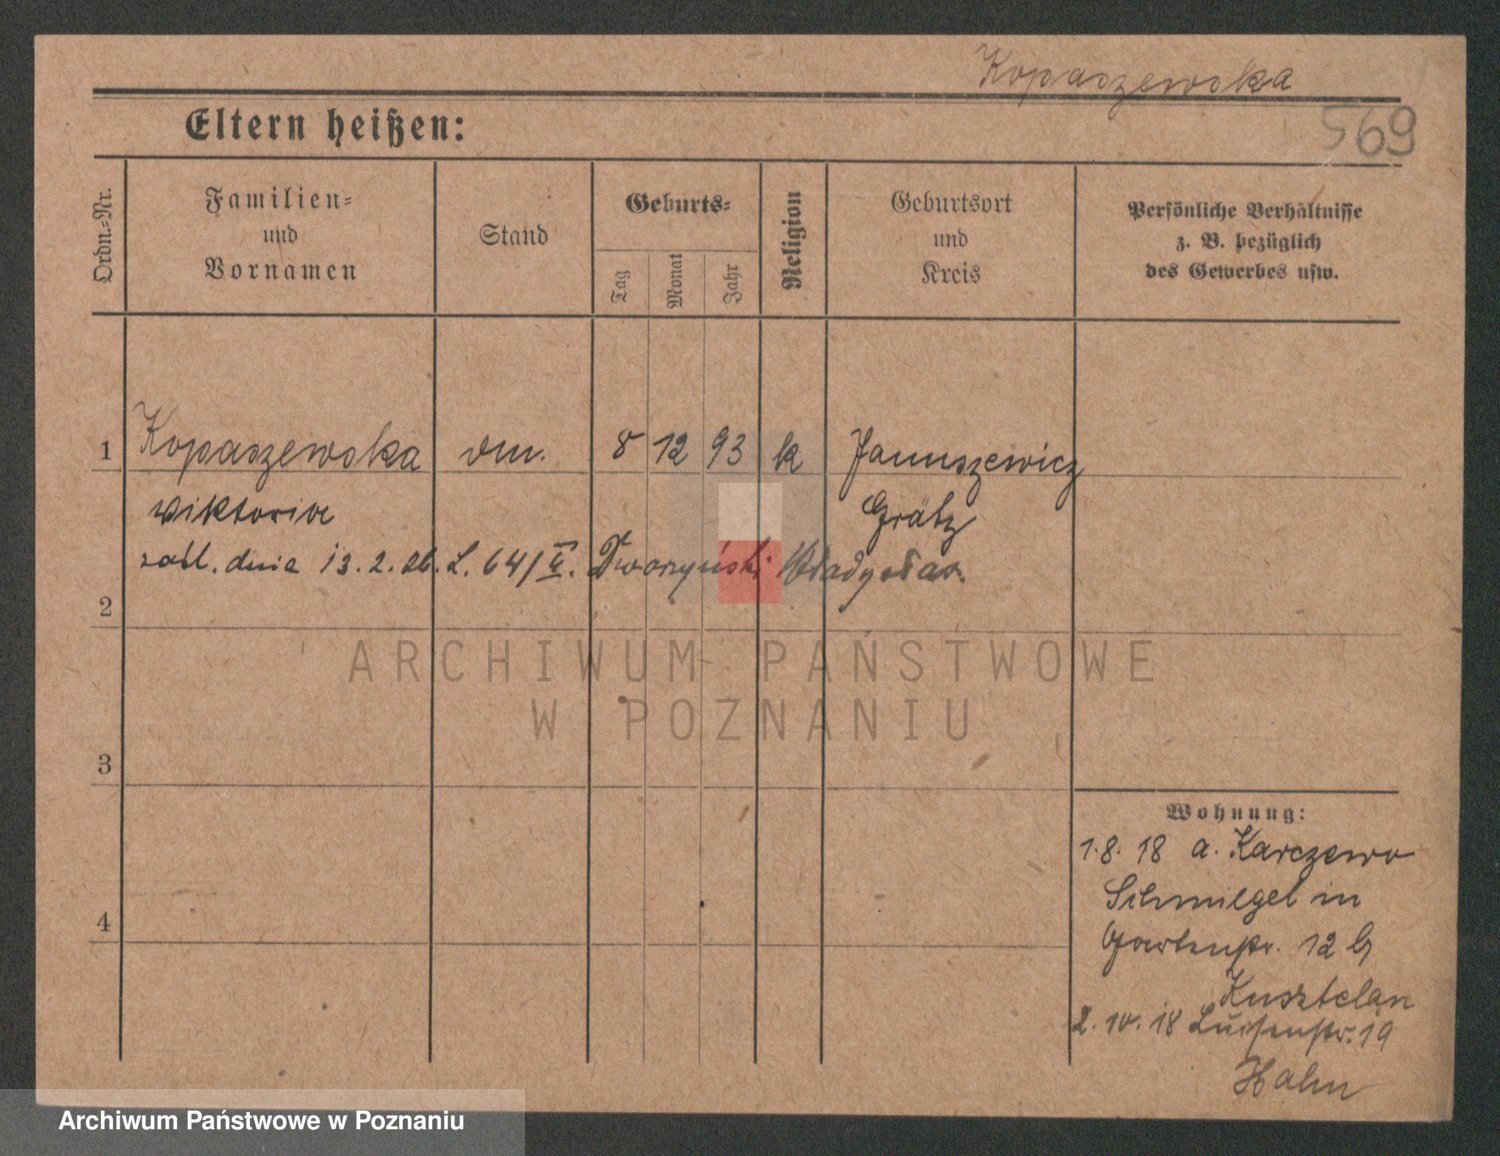 Kopaszewska
569
Eltern heißen:
Ordn.=Nr.
Familien=
und
Vornamen
Stand
Geburts=
Tag
Monat
Jahr
Religion
Geburtsort
und
Kreis
Persönliche Verhältnisse
z. B. bezüglich
des Gewerbes usw.
1 Kopaszewska 8 12 93 k Januszewicz
Wiktoria Grätz
dnia 13.2.26. L. 64/V. Dworzyński Władysław.
2
ARCHIWUM PAŃSTWOWE
W POZNANIU
3
Wohnung:
1.8. 18 a. Karczewo
Schmiegel in
4
Gartenstr. 12 b
Kusztelan
2. 10. 18 Luisenstr. 19
Hahn
Archiwum Państwowe w Poznaniu